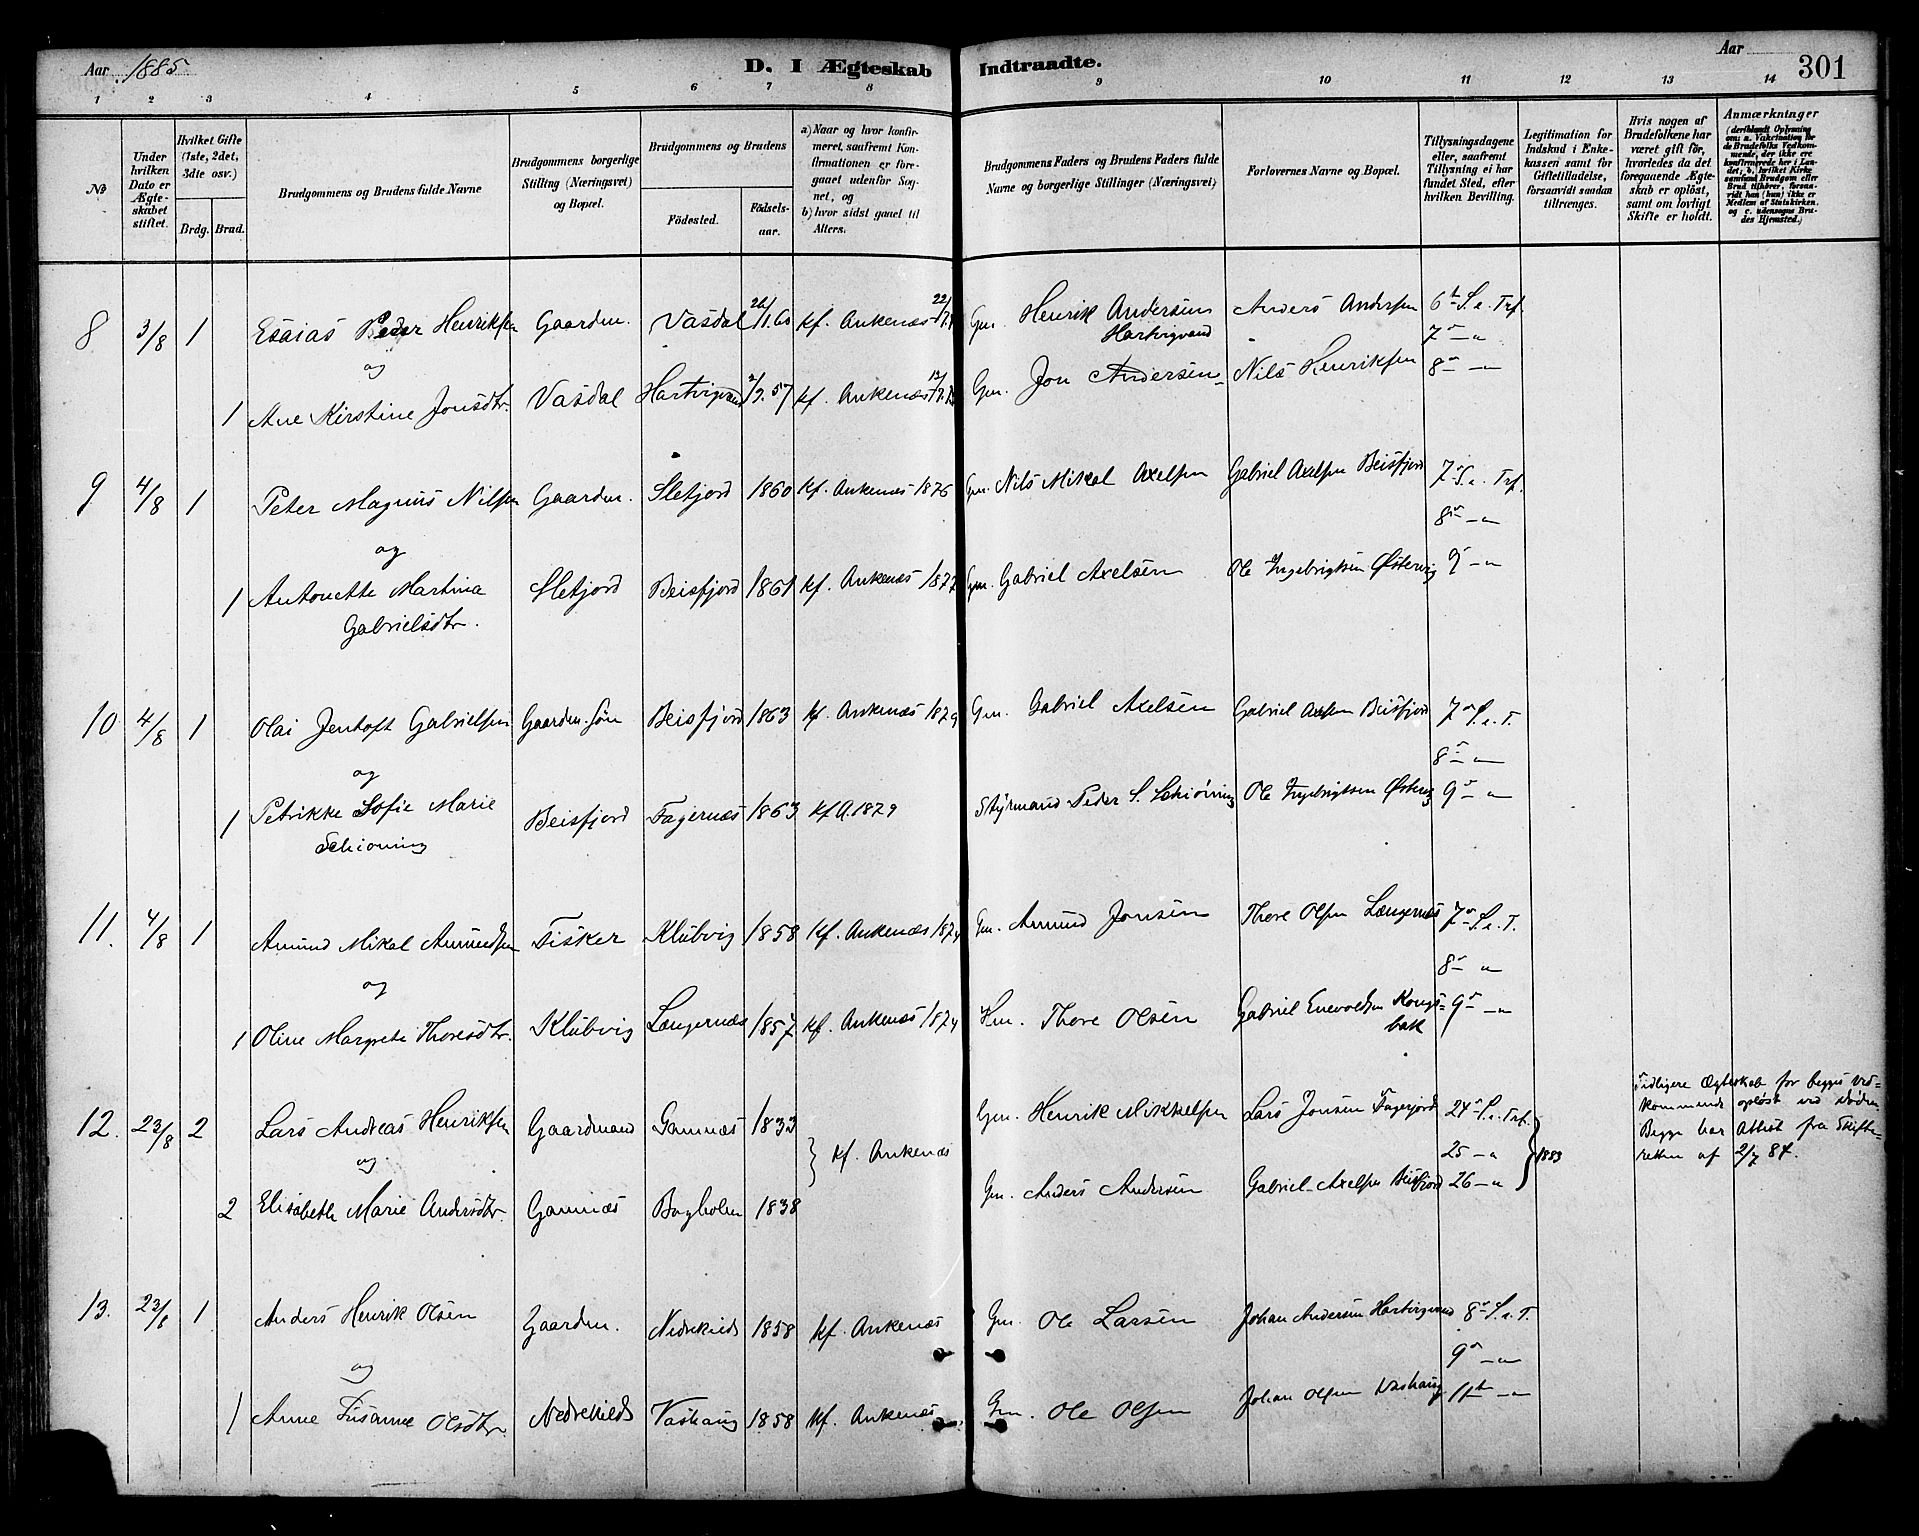 Aar 1885
D. I Ægteskab Indtraadte.
Aar
301
1 2 3 4 5 6 7 8 9 10 11 12 13 14
No
Under hvilken Dato er Ægteskabet stiftet.
Hvilket Gifte (1ste, 2det, 3die osv.)
Brdg. Brud.
Brudgommens og Brudens fulde Navne
Brudgommens borgerlige Stilling (Næringsvei) og Bopæl.
Brudgommens og Brudens
Födested.
Födsels-aar.
a) Naar og hvor konfirmeret, saafremt Konfirmationen er foregaaet udenfor Sognet, og
b) hvor sidst gaaet til Alters.
Brudgommens Faders og Brudens Faders fulde Navne og borgerlige Stillinger (Næringsvei)
Forlovernes Navne og Bopæl.
Tillysningsdagene eller, saafremt Tillysning ei har fundet Sted, efter hvilken Bevilling.
Legitimation for Indskud i Enkekassen samt for Giftetilladelse, forsaavidt saadan tiltrænges.
Hvis nogen af Brudefolkene har været gift för, hvorledes da det foregaaende Ægteskab er oplöst, samt om lovligt Skifte er holdt.
Anmærkninger
(deriblandt Oplysning om: a. Vakcination for de Brudefolks Vedkommende, der ikke ere konfirmerede her i Landet; b. hvilket Kirkesamfund Brudgom eller Brud tilhörer, forsaavidt han (hun) ikke er Medlem af Statskirken, og c. udensogns Brudes Hjemsted.)
8 3/8 1 Esaias Peder Henriksen Gaardm. Vasdal 26/1.60 kf. Ankenæs 22/ Gm. Henrik Andersen Hartvigvand Anders Andersen 6te S. e. Trf.
og 7de — "
1 Ane Kirstine Jonsdtr. Vasdal Hartvigvand 2/9.57 kf. Ankenæs Gm. Jon Andersen Nils Henriksen 8de — "
9 4/8 1 Peter Magnus Nilsen Gaardm. Sletjord 1860 kf. Ankenæs 1876 Gm. Nils Mikal Axelsen Gabriel Axelsen Beisfjord 7de S. e. Trf.
og 8de — "
1 Antonette Martina Gabrielsdtr. Sletjord Beisfjord 1861 kf. Ankenæs 1877 Gm. Gabriel Axelsen Ole Ingebrigtsen Østervig 9de — "
10 4/8 1 Olai Jentoft Gabrielsen Gaardm. Søn Beisfjord 1863 kf. Ankenæs 1879 Gm. Gabriel Axelsen Gabriel Axelsen Beisfjord 7de S. e. T.
og 8de — "
1 Petrikke Sofie Marie Schiønning Beisfjord Fagernæs 1863 kf A. 1879 Styrmand Peder S. Schiønning Ole Ingebrigtsen Østervig 9de — "
11. 4/8 1 Amund Mikal Amundsen Fisker Klubvig 1858 kf. Ankenæs 1874 Gm. Amund Jonsen Thore Olsen Længernæs 7de S. e. T.
og 8de — "
1 Oline Margrete Thoresdtr. Klubvig Længernæs 1857 kf. Ankenæs 1874 Hm. Thore Olsen Gabriel Enevoldsen Kongsbak 9de — "
12. 23/8 2 Lars Andreas Henriksen Gaardmand Gamnæs 1833 } kf. Ankenæs Gm. Henrik Mikkelsen Lars Jonsen Fagerjord 24de S. e. Trf. } 1883
og 25 — "
2 Elisabeth Marie Andersdtr. Gamnæs Bogholm 1838 Gm. Anders Andersen Gabriel Axelsen Beisfjord 26 — "
Tidligere Ægteskab for begges Vedkommende opløst ved Døden. Begge har Attest fra Skifteretten af 2/7 84.
13. 23/8 1 Anders Henrik Olsen Gaardm. 1858 kf. Ankenæs Gm. Ole Larsen Johan Andersen Hartvigvand 8de S. e. T.
og 9de — "
1 Anne Susanne Olsdtr. Vashaug 1858 kf. Ankenæs Gm. Ole Olsen Johan Olsen Vashaug 11te — "